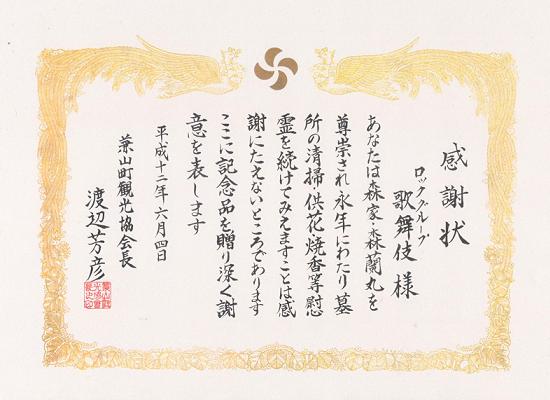 感謝状
ロックグループ
歌舞伎 様
あなたは森家・森蘭丸を
尊崇され永年にわたり墓
所の清掃・供花・焼香等慰
霊を続けてみえますことは感
謝にたえないところであります
ここに記念品を贈り深く謝
意を表します
平成十二年六月四日
兼山町観光協会長
渡辺芳彦